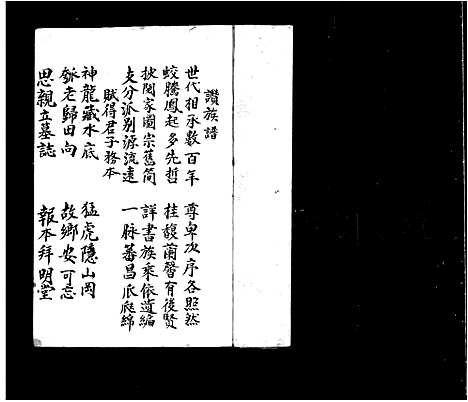 讚族譜
世代相承數百年 尊卑次序各照然
蛟騰鳳起多先哲 桂馥蘭馨有後賢
披閱家圖宗舊简 詳書族乘依遺編
支分派別源流遠 一脉蕃昌瓜瓞綿
賦得君子務本
神龍藏水底 猛虎隱山岡
穌老歸田向 故鄉安可忘
思親立墓誌 報本拜明堂